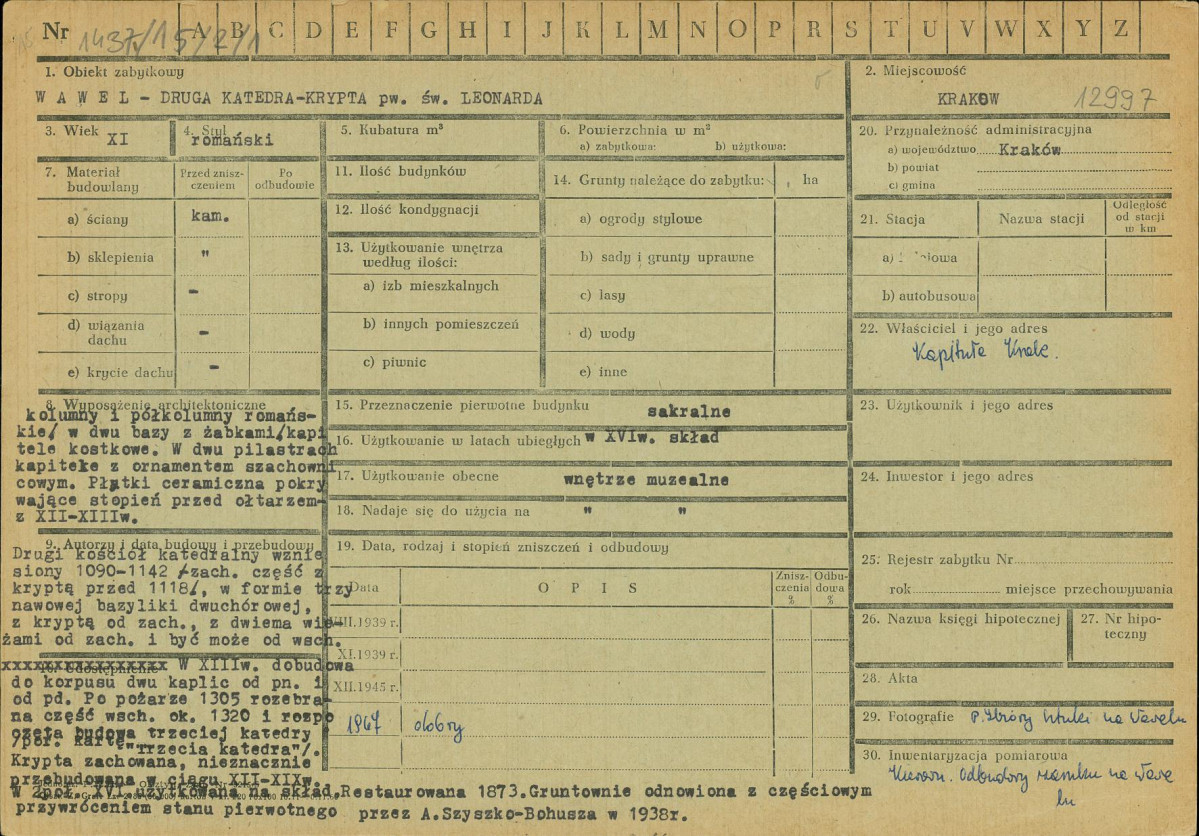 Nr 1437/15/2/1 A B C D E F G H I J K L M N O P R S T U V W X Y Z
1. Obiekt zabytkowy
W A W E L - DRUGA KATEDRA-KRYPTA pw. św. LEONARDA
2. Miejscowość
KRAKOW 12997
3. Wiek
XI
4. Styl
romański
5. Kubatura m³
6. Powierzchnia w m²
a) zabytkowa: b) użytkowa:
20. Przynależność administracyjna
a) województwo Kraków
b) powiat
c) gmina
7. Materiał budowlany
Przed zniszczeniem
Po odbudowie
a) ściany kam.
b) sklepienia "
c) stropy -
d) wiązania dachu -
e) krycie dachu -
11. Ilość budynków
12. Ilość kondygnacji
13. Użytkowanie wnętrza
według ilości:
a) izb mieszkalnych
b) innych pomieszczeń
c) piwnic
14. Grunty należące do zabytku: , ha
a) ogrody stylowe
b) sady i grunty uprawne
c) lasy
d) wody
e) inne
21. Stacja
Nazwa stacji
Odległość
od stacji
w km
a)
b) autobusowa
22. Właściciel i jego adres
Kapituła Krak.
8. Wyposażenie architektoniczne
kolumny i półkolumny romańs-
kie/ w dwu bazy z żabkami/kapi
tele kostkowe. W dwu pilastrach
kapitele z ornamentem szachowni
cowym. Płytki ceramiczna pokry
wające stopień przed ołtarzem-
z XII-XIIIw.
15. Przeznaczenie pierwotne budynku sakralne
16. Użytkowanie w latach ubiegłych w XVIw. skład
17. Użytkowanie obecne wnętrze muzealne
18. Nadaje się do użycia na " "
23. Użytkownik i jego adres
24. Inwestor i jego adres
9. Autorzy i data budowy i przebudowy
Drugi kościół katedralny wznie
siony 1090-1142 /zach. część z
kryptą przed 1118/, w formie trzy
nawowej bazyliki dwuchórowej,
z kryptą od zach., z dwiema wie-
żami od zach. i być może od wsch.
10. Udostępnienie
xxxxxxxxxxxxxxxxx W XIIIw. dobudowa
do korpusu dwu kaplic od pn. i
od pd. Po pożarze 1305 rozebra-
na część wsch. ok. 1320 i rozpo
częta budowa trzeciej katedry
/por. kartę "trzecia katedra"/.
Krypta zachowana, nieznacznie
przebudowana w ciągu XII-XIXw.
W 2poł. XVI użytkowana na skład. Restaurowana 1873.Gruntownie odnowiona z częściowym
przywróceniem stanu pierwotnego przez A.Szyszko-Bohusza w 1938r.
19. Data, rodzaj i stopień zniszczeń i odbudowy
Data
O P I S
Zniszczenia %
Odbudowa %
VIII.1939 r.
XI.1939 r.
XII.1945 r.
1967 dobry
25. Rejestr zabytku Nr
rok miejsce przechowywania
26. Nazwa księgi hipotecznej
27. Nr hipoteczny
28. Akta
29. Fotografie P. Zbiory Sztuki na Wawelu
30. Inwentaryzacja pomiarowa
Kierown. Odbudowy zamku na Wawe
lu